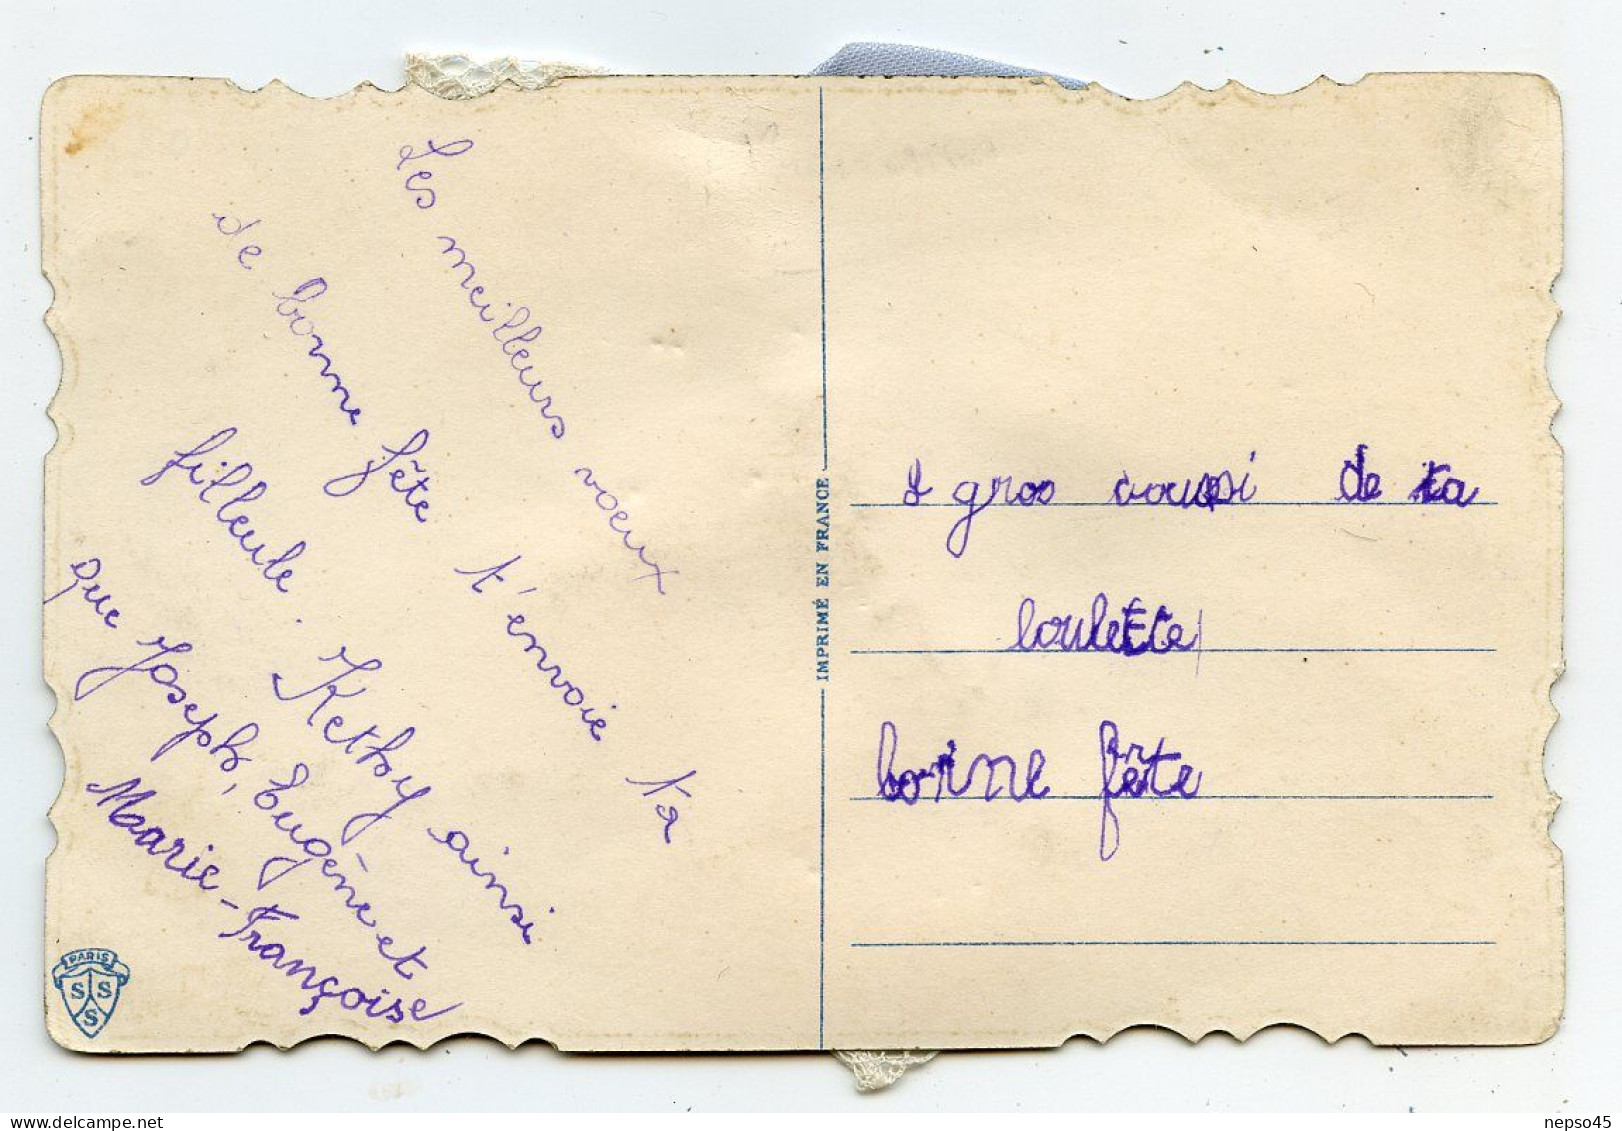 Les meilleurs voeux
de bonne fête t'envoie ta
filleule. Kethy ainsi
que Joseph, Eugène et
Maarie-Françoise
PARIS
S S
S
IMPRIMÉ EN FRANCE
gros de ta
loulette
bonne fête
nepso45